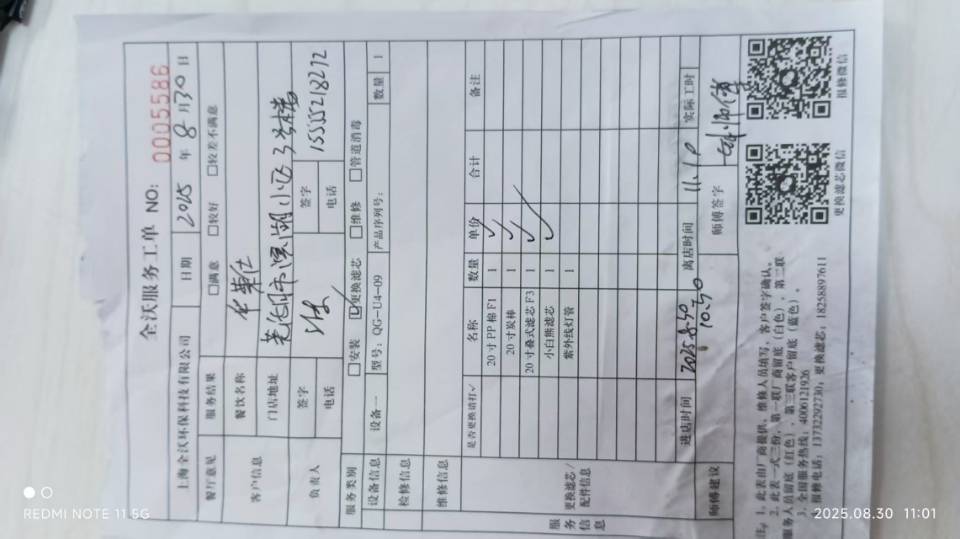 全沃服务工单 NO: 0005586
上海全沃环保科技有限公司 日期 2025 年 8 月 30 日
餐厅意见 服务结果 □满意 □较好 □较差不满意
客户信息 餐饮名称 华莱仕
门店地址 莱阳市 湖小区 3号楼
负责人 签字 签字
电话 电话 15555218272
服务类别 □安装 ☑更换滤芯 □维修 □管道消毒
设备信息 设备一 型号: QG-U4-09 产品序列号: 数量 1
检修信息
维修信息
服务信息 更换滤芯/配件信息 是否更换请打✓ 名称 数量 单价 合计 备注
20寸PP棉F1 1 ✓
20寸炭棒 1 ✓
20寸叠式滤芯F3 1 ✓
小白熊滤芯 1 ✓
紫外线灯管 1
进店时间 2025.8.30 10:30 离店时间 11.10 实际工时
师傅建议 师傅签字
注: 1、此表由厂商提供、维修人员填写, 客户签字确认。
2、此表一式三份, 第一联厂商留底(白色), 第二联
服务人员留底(红色), 第三联客户留底(蓝色)。
3、全国服务热线: 4006121926
报修电话: 13732292730; 更换滤芯: 18258897611
更换滤芯微信 报修微信
REDMI NOTE 11 5G
2025.08.30 11:01